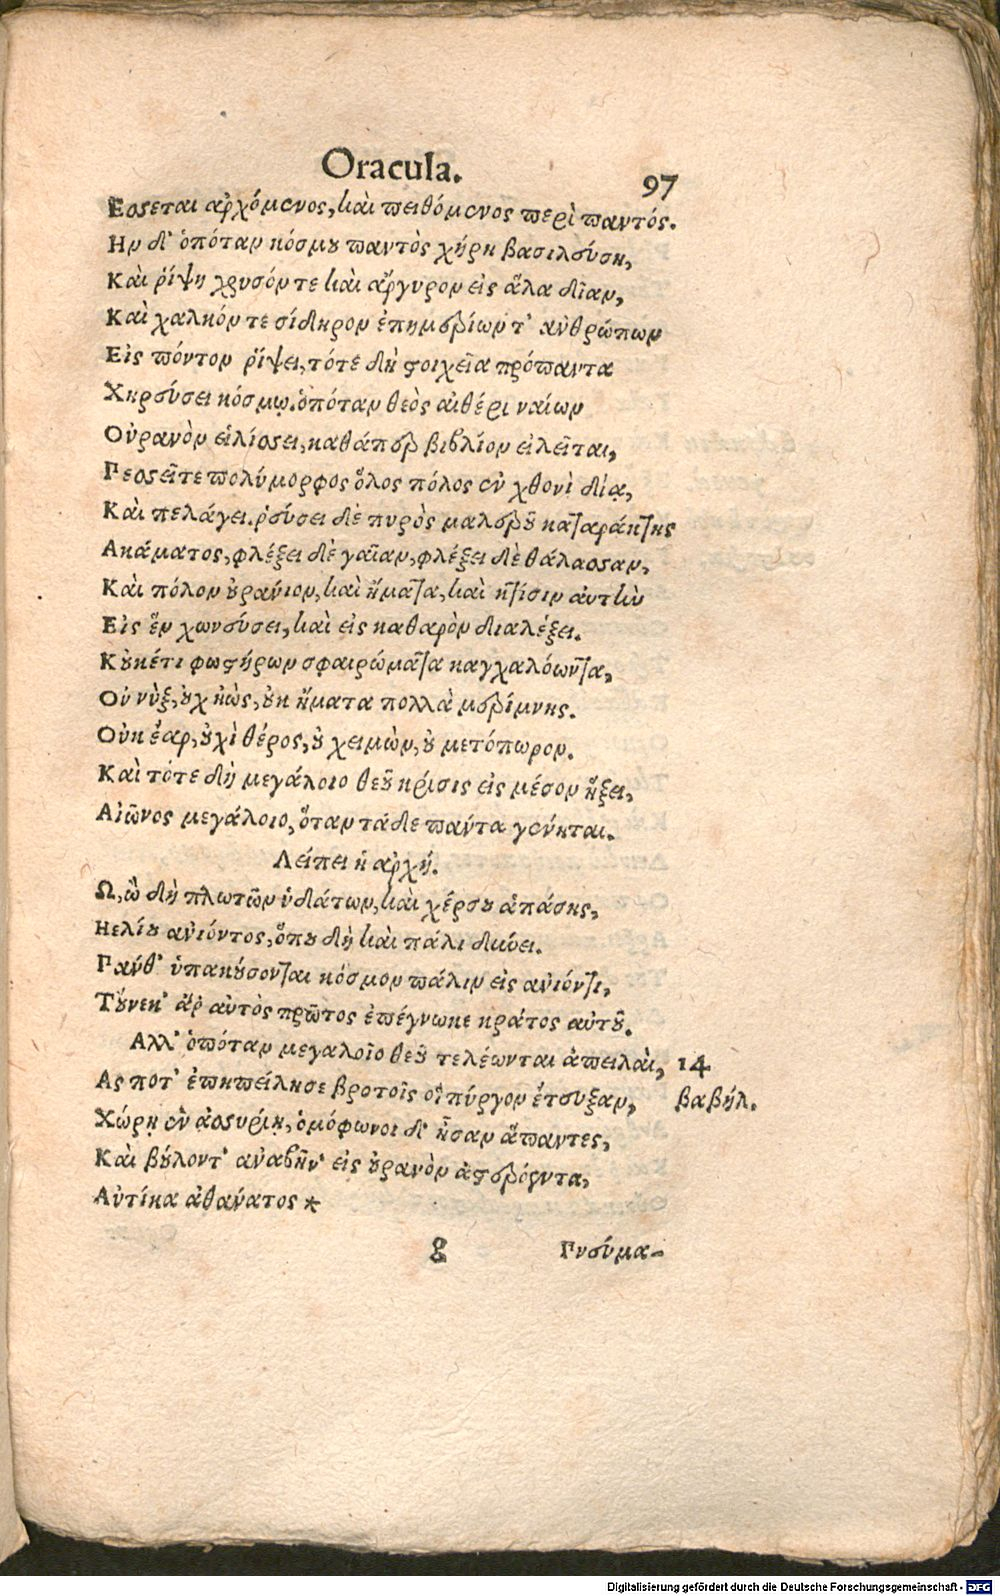 Oracula.
97
Εσσεται αρχόμενος, καὶ πειθόμενος περὶ παντός.
Ην δ' ὁπόταν κόσμου παντὸς χήρη βασιλεύση,
Καὶ ῥίψη χρυσόν τε καὶ ἄργυρον εἰς ἅλα δῖαν,
Καὶ χαλκόν τε σίδηρον ἐπημερίων τ' ανθρώπων
Εἰς πόντον ῥίψει, τότε δὴ στοιχεῖα πρόπαντα
Χηρεύσει κόσμῳ. ὁπόταν θεὸς αἰθέρι ναίων
Οὐρανὸν εἱλίσσει, καθάπερ βιβλίον εἰλεῖται,
Γεσσεῖτε πολύμορφος ὅλος πόλος ἐν χθονὶ δία,
Καὶ πελάγει. ῥεύσει δὲ πυρὸς μαλεροῦ καταράκτης
Ακάματος, φλέξει δὲ γαῖαν, φλέξει δὲ θάλασσαν,
Καὶ πόλον οὐράνιον, καὶ ἤματα, καὶ κτίσιν αὐτὴν
Εἰς ἓν χωνεύσει, καὶ εἰς καθαρὸν διαλέξει.
Κουκέτι φωστήρων σφαιρώματα καγχαλόωντα,
Οὐ νὺξ, οὐχ ἠὼς, οὐκ ἤματα πολλὰ μερίμνης.
Οὐκ ἔαρ, οὐχὶ θέρος, οὐ χειμὼν, οὐ μετόπωρον.
Καὶ τότε δὴ μεγάλοιο θεοῦ κρίσις εἰς μέσον ἥξει,
Αἰῶνος μεγάλοιο, ὅταν τάδε πάντα γένηται.
Λείπει ἡ αρχή.
Ω, ὢ δὴ πλωτῶν ὑδάτων, καὶ χέρσου ἁπάσης,
Ηελίου ανιόντος, ὅπου δὴ καὶ πάλι δύνει.
Γάνθ' ὑπακούσονται κόσμον πάλιν εἰς ανιόντι,
Τοὔνεκ' ἄρ αὐτὸς πρῶτος ἐπέγνωκε κράτος αὐτοῦ.
Αλλ' ὁπόταν μεγαλοῖο θεοῦ τελέωνται ἀπειλαὶ, 14
Ας ποτ' ἐπηπείλησε βροτοῖς οἳ πύργον ἔτευξαν, βαβήλ.
Χώρῃ ἐν ἀσσυρίῃ, ὁμόφωνοι δ' ἦσαν ἅπαντες,
Καὶ βούλοντ' αναβῆν' εἰς οὐρανὸν ἀστερόεντα,
Αὐτίκα ἀθανατος *
g Γνεύμα-
Digitalisierung gefördert durch die Deutsche Forschungsgemeinschaft - DFG